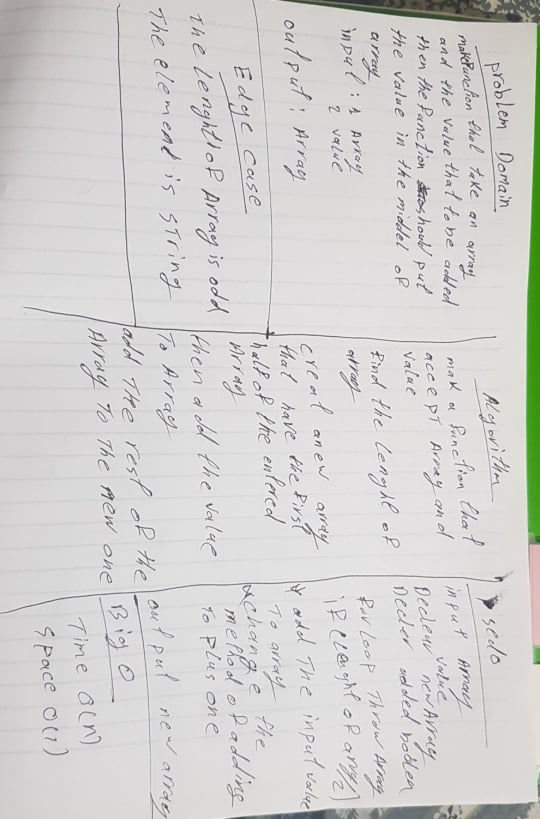 problem Domain
makfunction that take an array
and the value that to be added
then the function should put
the value in the middel of
array
input : 1 Array
2 value
output : Array
Edge case
the Lenght of Array is odd
The element is string
Algorithm
mak a function that
accept Array and
value
Find the Lenght of
array
creat a new array
that have the first
half of the entered
Array
then add the value
To Array
add The rest of the
Array To The new one
sedo
input Array
input value
Declear newArray
Declear added boolen
For loop Throw Array
if (Lenght of arry/2)
* add The input value
To array
* change the
method of adding
to plus one
output new array
Big O
Time O(n)
Space O(1)